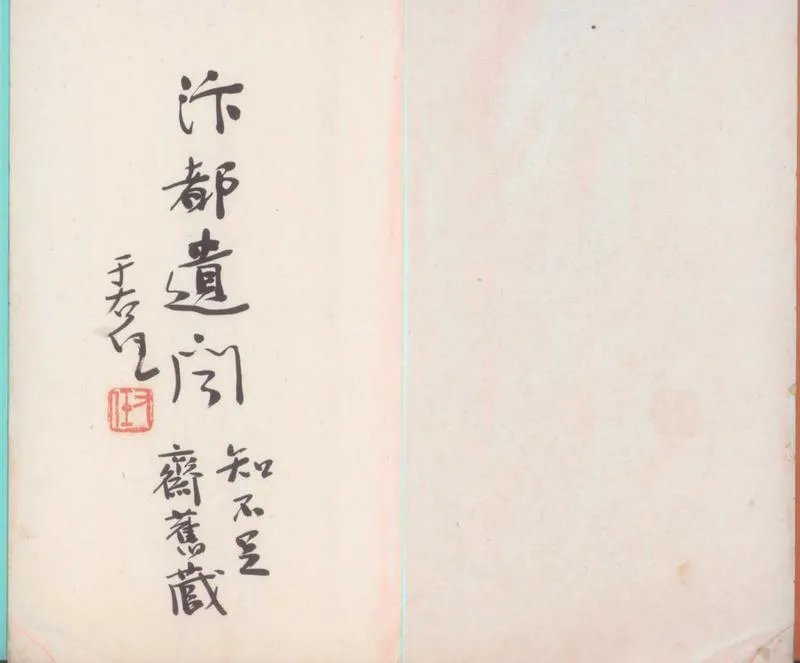 汴都遺聞
知不足
齋舊藏
于右任
右任